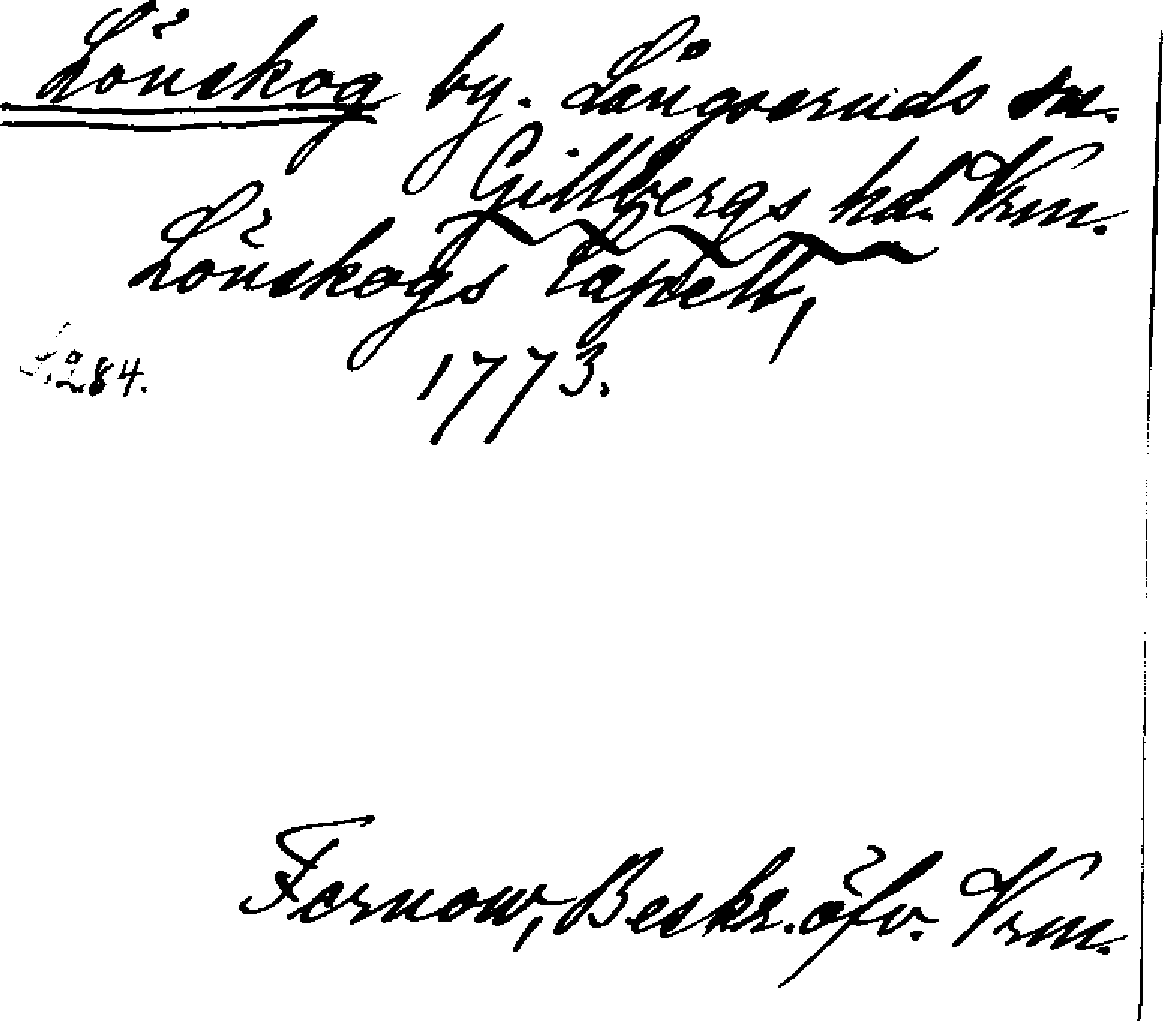 Lönskog by. Långseruds sn.
Gillbergs hd. Vrm.
Lönskogs Capell,
S. 284. 1773.
Fernow, Beskr. öfv. Vrm.